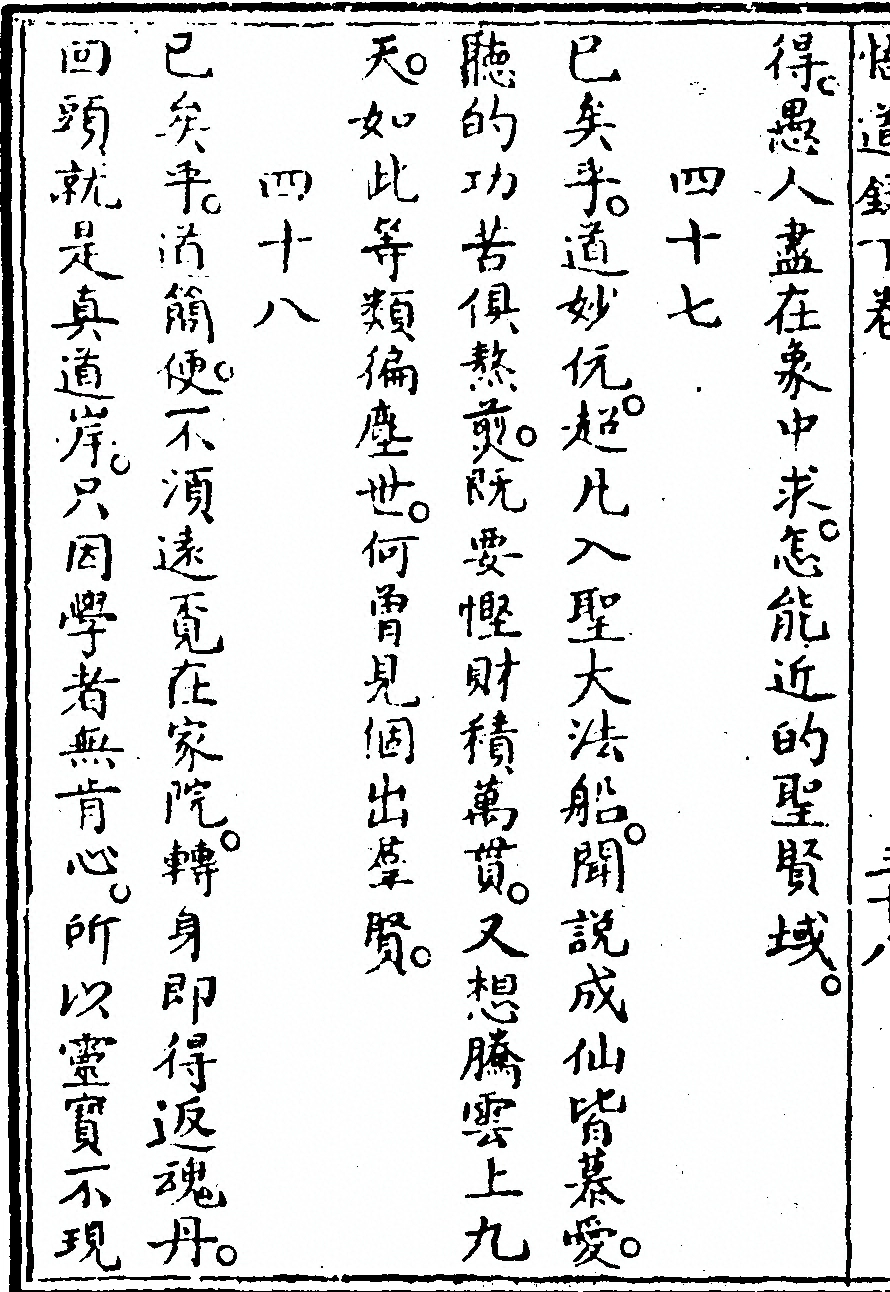 悟道錄下卷 三十八
得。愚人盡在象中求。怎能近的聖賢域。
四十七
已矣乎。道妙伭。超凡入聖大法船。聞說成仙皆慕愛。
聽的功苦俱熬煎。既要慳財積萬貫。又想騰雲上九
天。如此等類徧塵世。何曾見個出羣賢。
四十八
已矣乎。道簡便。不須遠覓在家院。轉身即得返魂丹。
回頭就是真道岸。只因學者無肯心。所以靈寶不現